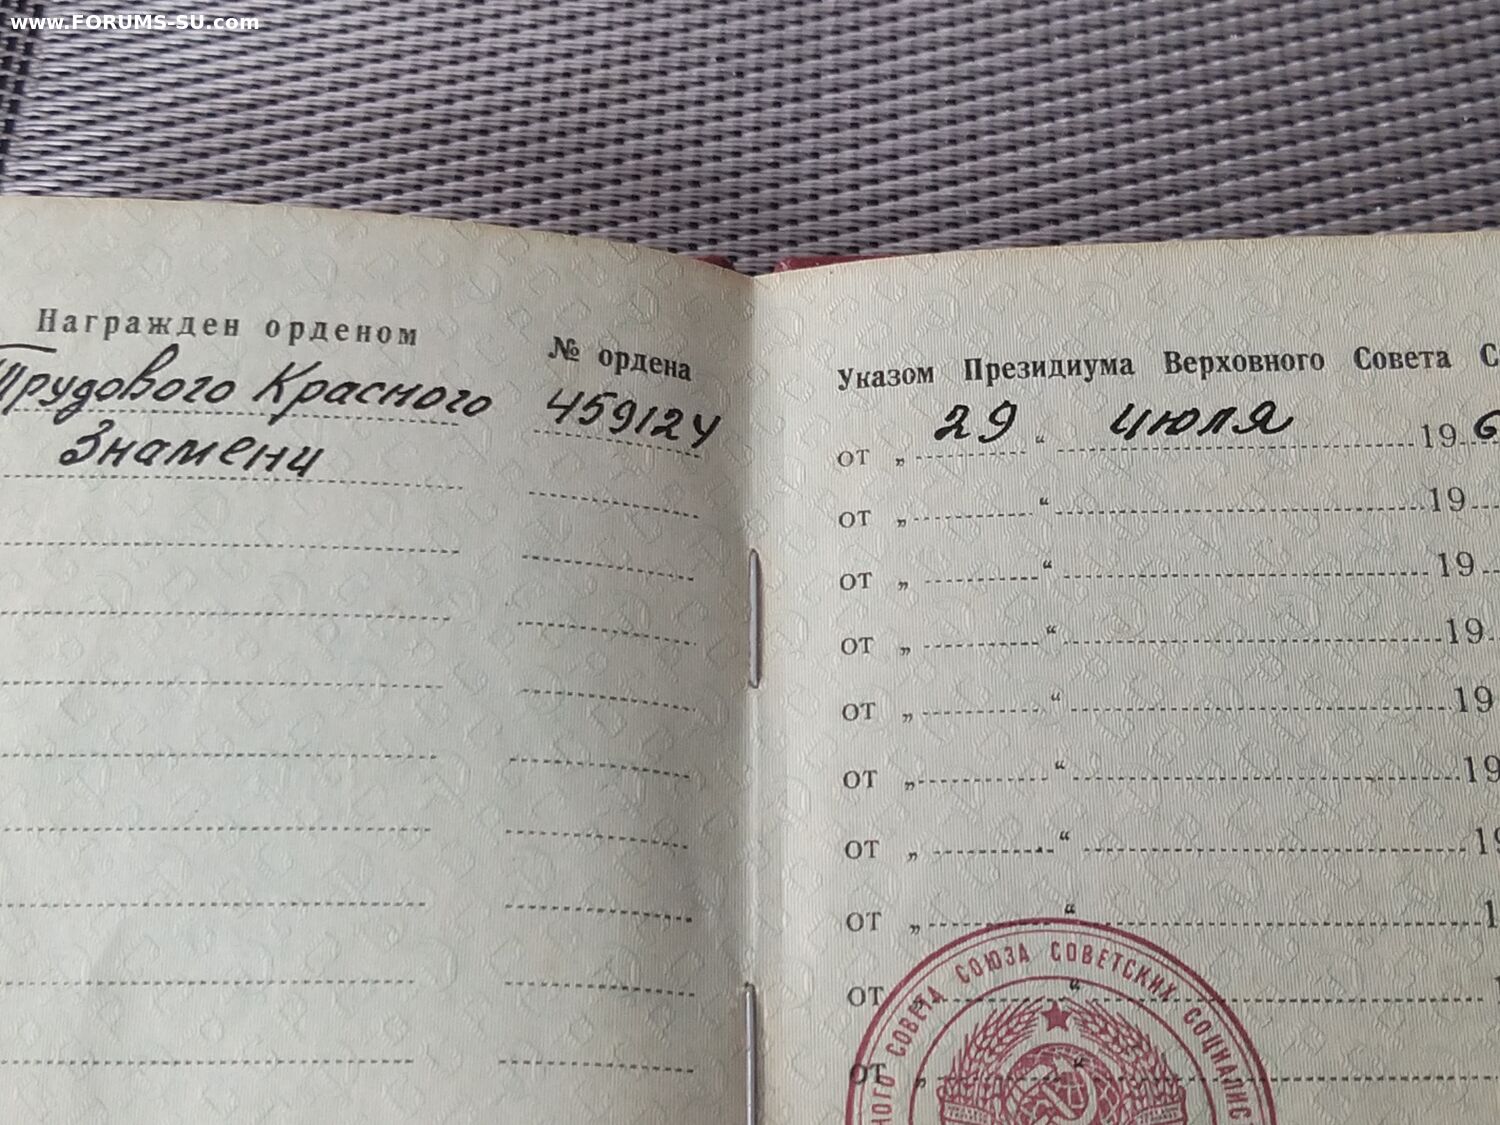 www.FORUMS-SU.com
Награжден орденом
№ ордена
Трудового Красного
459124
Знамени
Указом Президиума Верховного Совета С
от „ 29 “ июля 196
от „ “ 19
от „ “ 19
от „ “ 19
от „ “ 19
от „ “ 19
от „ “ 19
от „ “ 1
от „ “ 1
от „ “
НОГО СОВЕТА СОЮЗА СОВЕТСКИХ СОЦИАЛИС